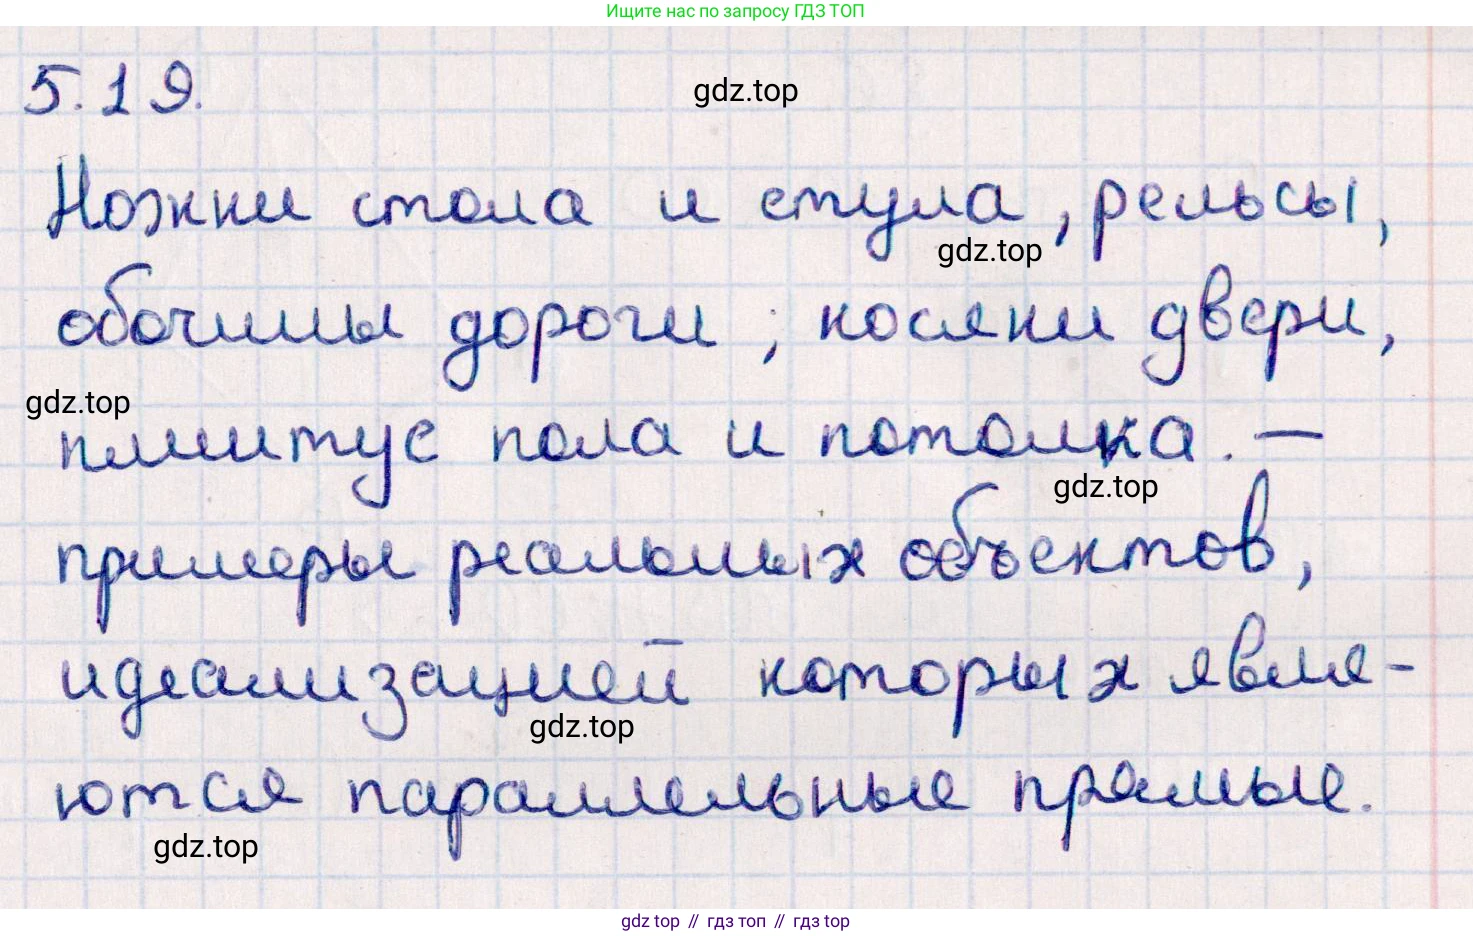 Ищите нас по запросу ГДЗ ТОП
5.19.
gdz.top
Ножки стола и стула, рельсы,
gdz.top
обочины дороги, косяки двери,
gdz.top
плинтус пола и потолка. —
gdz.top
примеры реальных объектов,
идеализацией которых явля-
gdz.top
ются параллельные прямые.
gdz.top
gdz top // гдз топ // гдз top